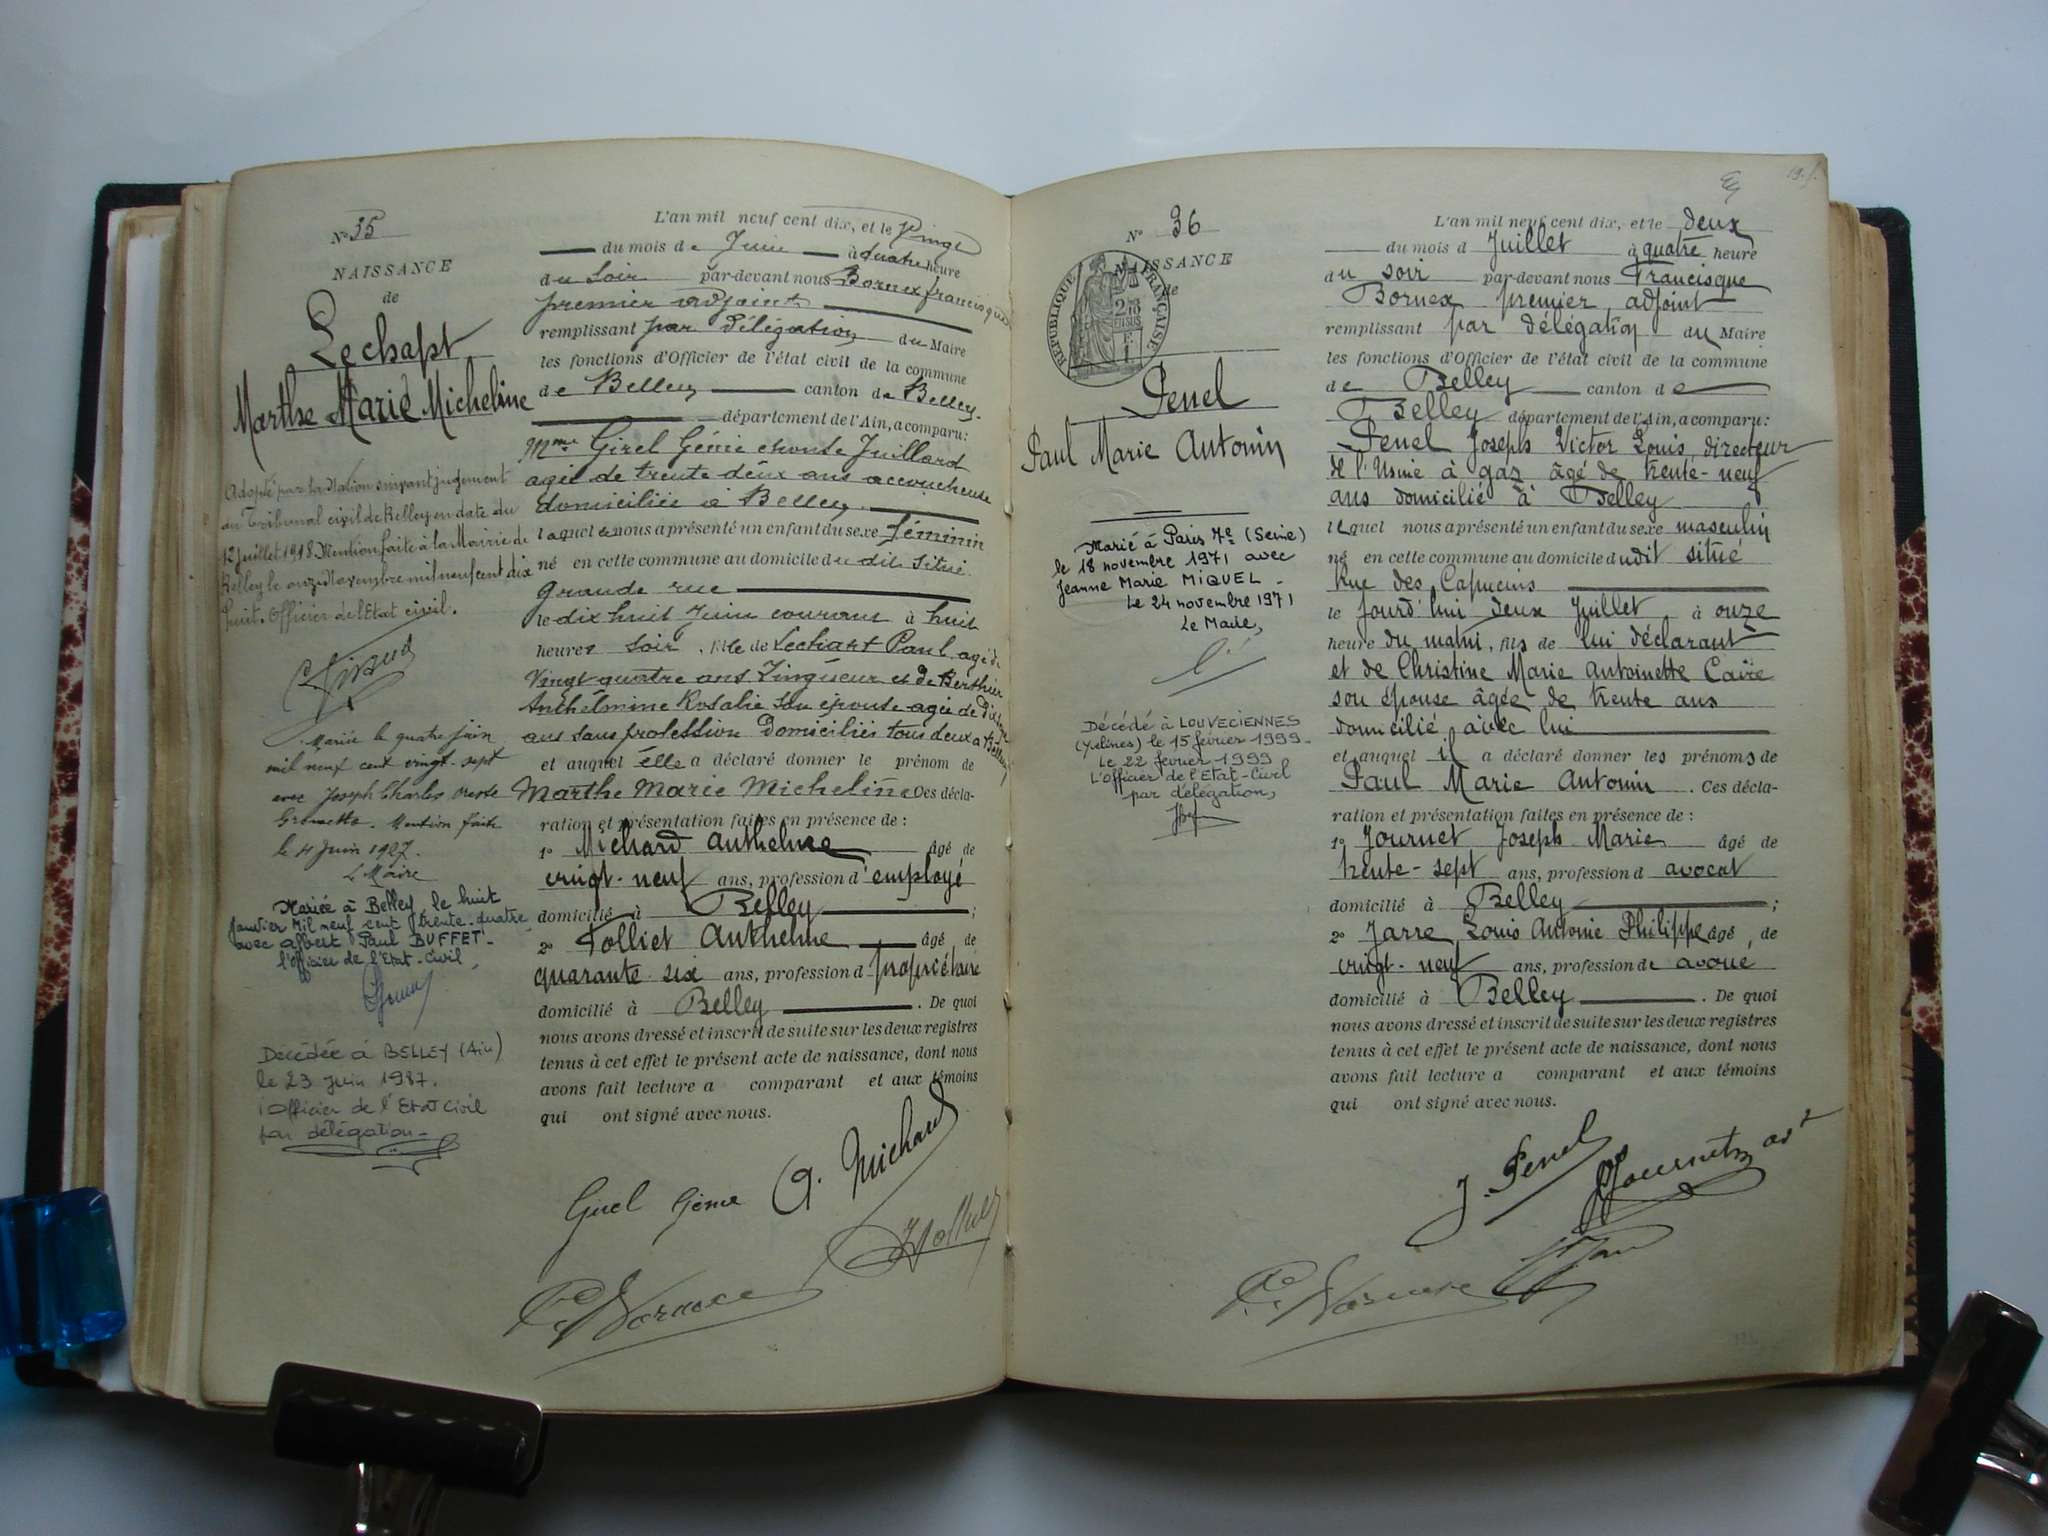 N° 35
NAISSANCE
de
Lechapt
Marthe Marie Micheline
Adopté par la Nation suivant jugement
au Tribunal civil de Belley en date du
12 juillet 1918. Mention faite à la Mairie de
Belley le onze Novembre mil neuf cent dix
huit. Officier de l'Etat civil.
Mariée le quatre juin
mil neuf cent vingt-sept
avec Joseph Charles Oreste
Mention faite
le 4 juin 1927.
Le Maire
Mariée à Belley, le huit
Janvier mil neuf cent trente-quatre
avec Albert Paul BUFFET-
l'Officier de l'Etat-Civil,
Décédée à BELLEY (Ain)
le 23 juin 1987.
l'Officier de l'Etat Civil
par délégation-
L'an mil neuf cent dix, et le Vingt
du mois de Juin à quatre heure
du Soir par-devant nous Bornex francisque
premier adjoint
remplissant par délégation du Maire
les fonctions d'Officier de l'état civil de la commune
de Belley canton de Belley.
département de l'Ain, a comparu:
Mme Girel Génie Juillard
agée de trente deux ans accoucheuse
domiciliée à Belley.
laquelle nous a présenté un enfant du sexe féminin
né en cette commune au domicile du dit situé
Grande rue
le dix huit Juin courant à huit
heures soir, fille de Lechapt Paul agé de
Vingt quatre ans Zingueur et de Berthier
Anthelmine Rosalie son épouse agée de
ans sans profession Domiciliés tous deux à Belley
et auquel elle a déclaré donner le prénom de
Marthe Marie Micheline Ces décla-
ration et présentation faites en présence de :
1° Michard Anthelme âgé de
vingt-neuf ans, profession d'employé
domicilié à Belley ;
2° Tolliet Anthelme âgé de
quarante six ans, profession d propriétaire
domicilié à Belley . De quoi
nous avons dressé et inscrit de suite sur les deux registres
tenus à cet effet le présent acte de naissance, dont nous
avons fait lecture a comparant et aux témoins
qui ont signé avec nous.
Girel Génie A. Michard
N° 36
NAISSANCE
de
RÉPUBLIQUE FRANÇAISE
Penel
Paul Marie Antonin
Marié à Paris 7e (Seine)
le 18 novembre 1971 avec
Jeanne Marie MIQUEL -
Le 24 novembre 1971
Le Maire,
Décédé à LOUVECIENNES
(Yvelines) le 15 février 1999-
Le 22 février 1999
L'Officier de l'Etat-Civil
par délégation,
L'an mil neuf cent dix, et le deux
du mois d Juillet à quatre heure
du soir par-devant nous Francisque
Bornex premier adjoint
remplissant par délégation du Maire
les fonctions d'Officier de l'état civil de la commune
de Belley canton de
Belley département de l'Ain, a comparu:
Penel Joseph Victor Louis, directeur
de l'Usine à gaz âgé de trente-neuf
ans domicilié à Belley
lequel nous a présenté un enfant du sexe masculin
né en cette commune au domicile dudit situé
Rue des Capucins
le jourd'hui deux Juillet à onze
heure du matin, fils de lui déclarant
et de Christine Marie Antoinette Caire
son épouse âgée de trente ans
domicilié avec lui
et auquel il a déclaré donner les prénoms de
Paul Marie Antonin . Ces décla-
ration et présentation faites en présence de :
1° Journet Joseph Marie âgé de
trente-sept ans, profession d avocat
domicilié à Belley ;
2° Jarre Louis Antoine Philippe âgé de
vingt-neuf ans, profession de avoué
domicilié à Belley . De quoi
nous avons dressé et inscrit de suite sur les deux registres
tenus à cet effet le présent acte de naissance, dont nous
avons fait lecture a comparant et aux témoins
qui ont signé avec nous.
J. Penel